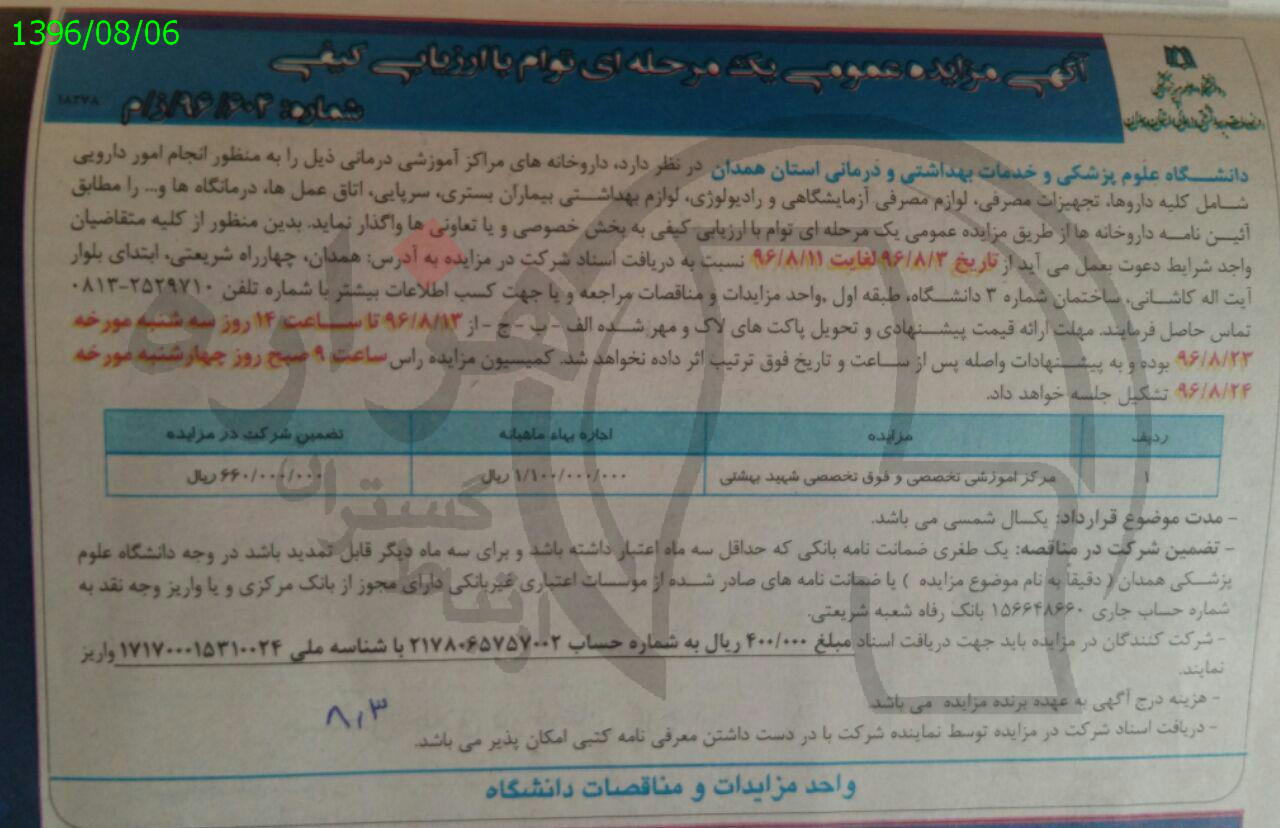 1396/08/06
آگهی مزایده عمومی یک مرحله ای توام با ارزیابی کیفی
شماره: ۹۶/۶۰۲/ز/م
۱۸۲۷۸
دانشگاه علوم پزشکی و خدمات بهداشتی و درمانی استان همدان در نظر دارد، داروخانه های مراکز آموزشی درمانی ذیل را به منظور انجام امور دارویی
شامل کلیه داروها، تجهیزات مصرفی، لوازم مصرفی آزمایشگاهی و رادیولوژی، لوازم بهداشتی بیماران بستری، سرپایی، اتاق عمل ها، درمانگاه ها و... را مطابق
آئین نامه داروخانه ها از طریق مزایده عمومی یک مرحله ای توام با ارزیابی کیفی به بخش خصوصی و یا تعاونی ها واگذار نماید. بدین منظور از کلیه متقاضیان
واجد شرایط دعوت بعمل می آید از تاریخ ۹۶/۸/۳ لغایت ۹۶/۸/۱۱ نسبت به دریافت اسناد شرکت در مزایده به آدرس: همدان، چهارراه شریعتی، ابتدای بلوار
آیت اله کاشانی، ساختمان شماره ۳ دانشگاه، طبقه اول ،واحد مزایدات و مناقصات مراجعه و یا جهت کسب اطلاعات بیشتر با شماره تلفن ۲۵۲۹۷۱۰-۰۸۱۳
تماس حاصل فرمایند. مهلت ارائه قیمت پیشنهادی و تحویل پاکت های لاک و مهر شده الف - ب - ج - از ۹۶/۸/۱۳ تا ساعت ۱۴ روز سه شنبه مورخه
۹۶/۸/۲۳ بوده و به پیشنهادات واصله پس از ساعت و تاریخ فوق ترتیب اثر داده نخواهد شد. کمیسیون مزایده راس ساعت ۹ صبح روز چهارشنبه مورخه
۹۶/۸/۲۴ تشکیل جلسه خواهد داد.
ردیف مزایده اجاره بهاء ماهیانه تضمین شرکت در مزایده
۱ مرکز آموزشی تخصصی و فوق تخصصی شهید بهشتی ۱/۱۰۰/۰۰۰/۰۰۰ ریال ۶۶۰/۰۰۰/۰۰۰ ریال
- مدت موضوع قرارداد: یکسال شمسی می باشد.
- تضمین شرکت در مناقصه: یک طغری ضمانت نامه بانکی که حداقل سه ماه اعتبار داشته باشد و برای سه ماه دیگر قابل تمدید باشد در وجه دانشگاه علوم
پزشکی همدان ( دقیقاً به نام موضوع مزایده ) یا ضمانت نامه های صادر شده از موسسات اعتباری غیربانکی دارای مجوز از بانک مرکزی و یا واریز وجه نقد به
شماره حساب جاری ۱۵۶۶۴۸۶۶۰ بانک رفاه شعبه شریعتی.
- شرکت کنندگان در مزایده باید جهت دریافت اسناد مبلغ ۴۰۰/۰۰۰ ریال به شماره حساب ۲۱۷۸۰۶۵۷۵۷۰۰۲ با شناسه ملی ۱۷۱۷۰۰۰۱۵۳۱۰۰۲۴ واریز
نمایند.
- هزینه درج آگهی به عهده برنده مزایده می باشد.
- دریافت اسناد شرکت در مزایده توسط نماینده شرکت با در دست داشتن معرفی نامه کتبی امکان پذیر می باشد.
۸٫۳
واحد مزایدات و مناقصات دانشگاه
هزاره
گستران
ارتباط